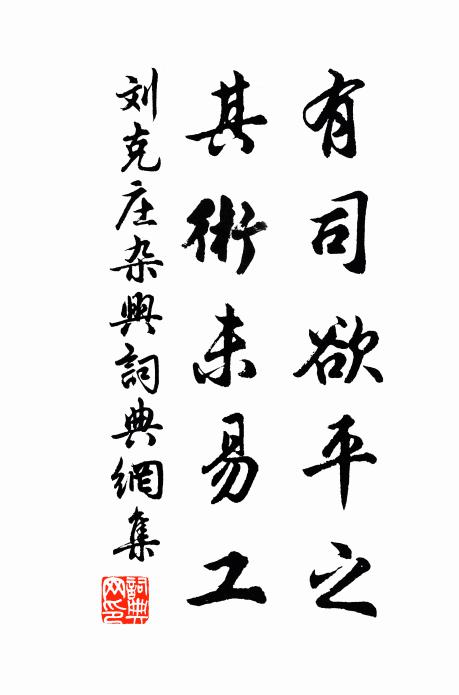 有司欲平之
其術未易工
刘克庄杂興詞典網集
詞典网印